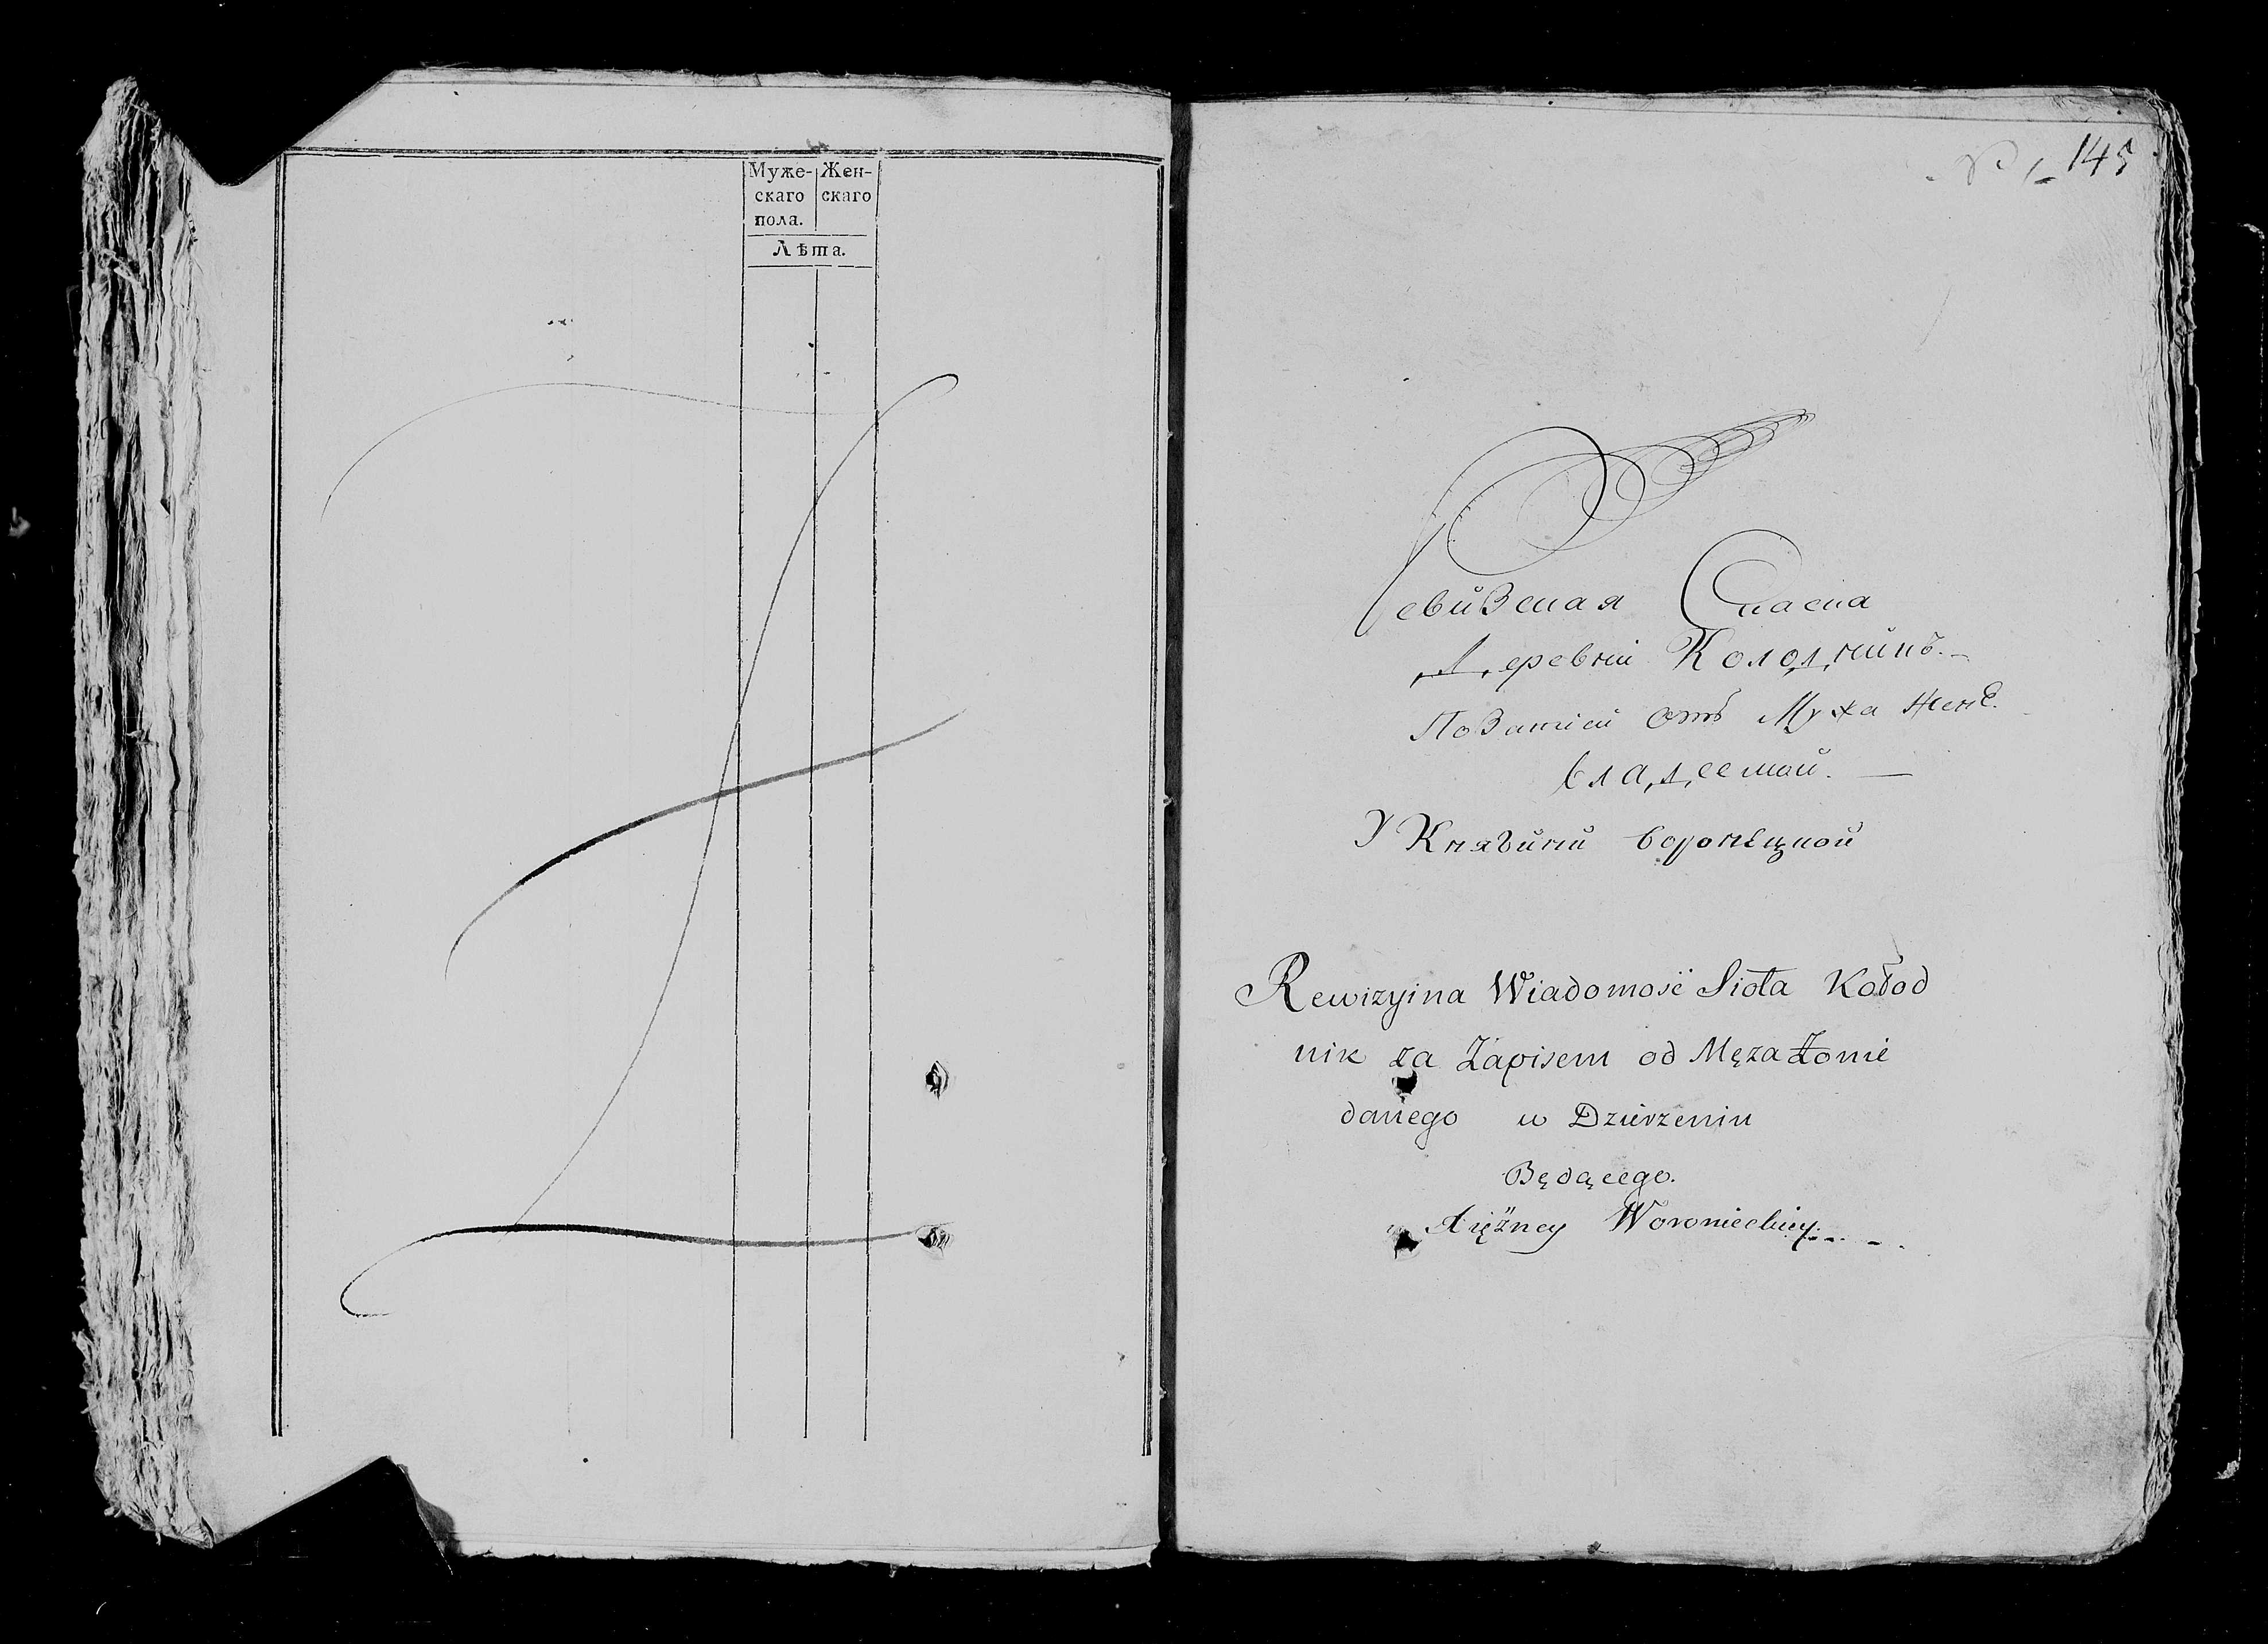 Муже- Жен-
скаго скаго
пола.
Лѣта.
№ 1 145
Ревизская Сказка
Деревни Колодникъ.
По Записи отъ Мужа Женѣ
владеемой.
У Княгини Воронѣцкой
Rewizyina Wiadomość Sioła Kołod
nik za Zapisem od Męza Żonie
danego w Dzierzeniu
Będącego.
Xiężney Woronieckiey